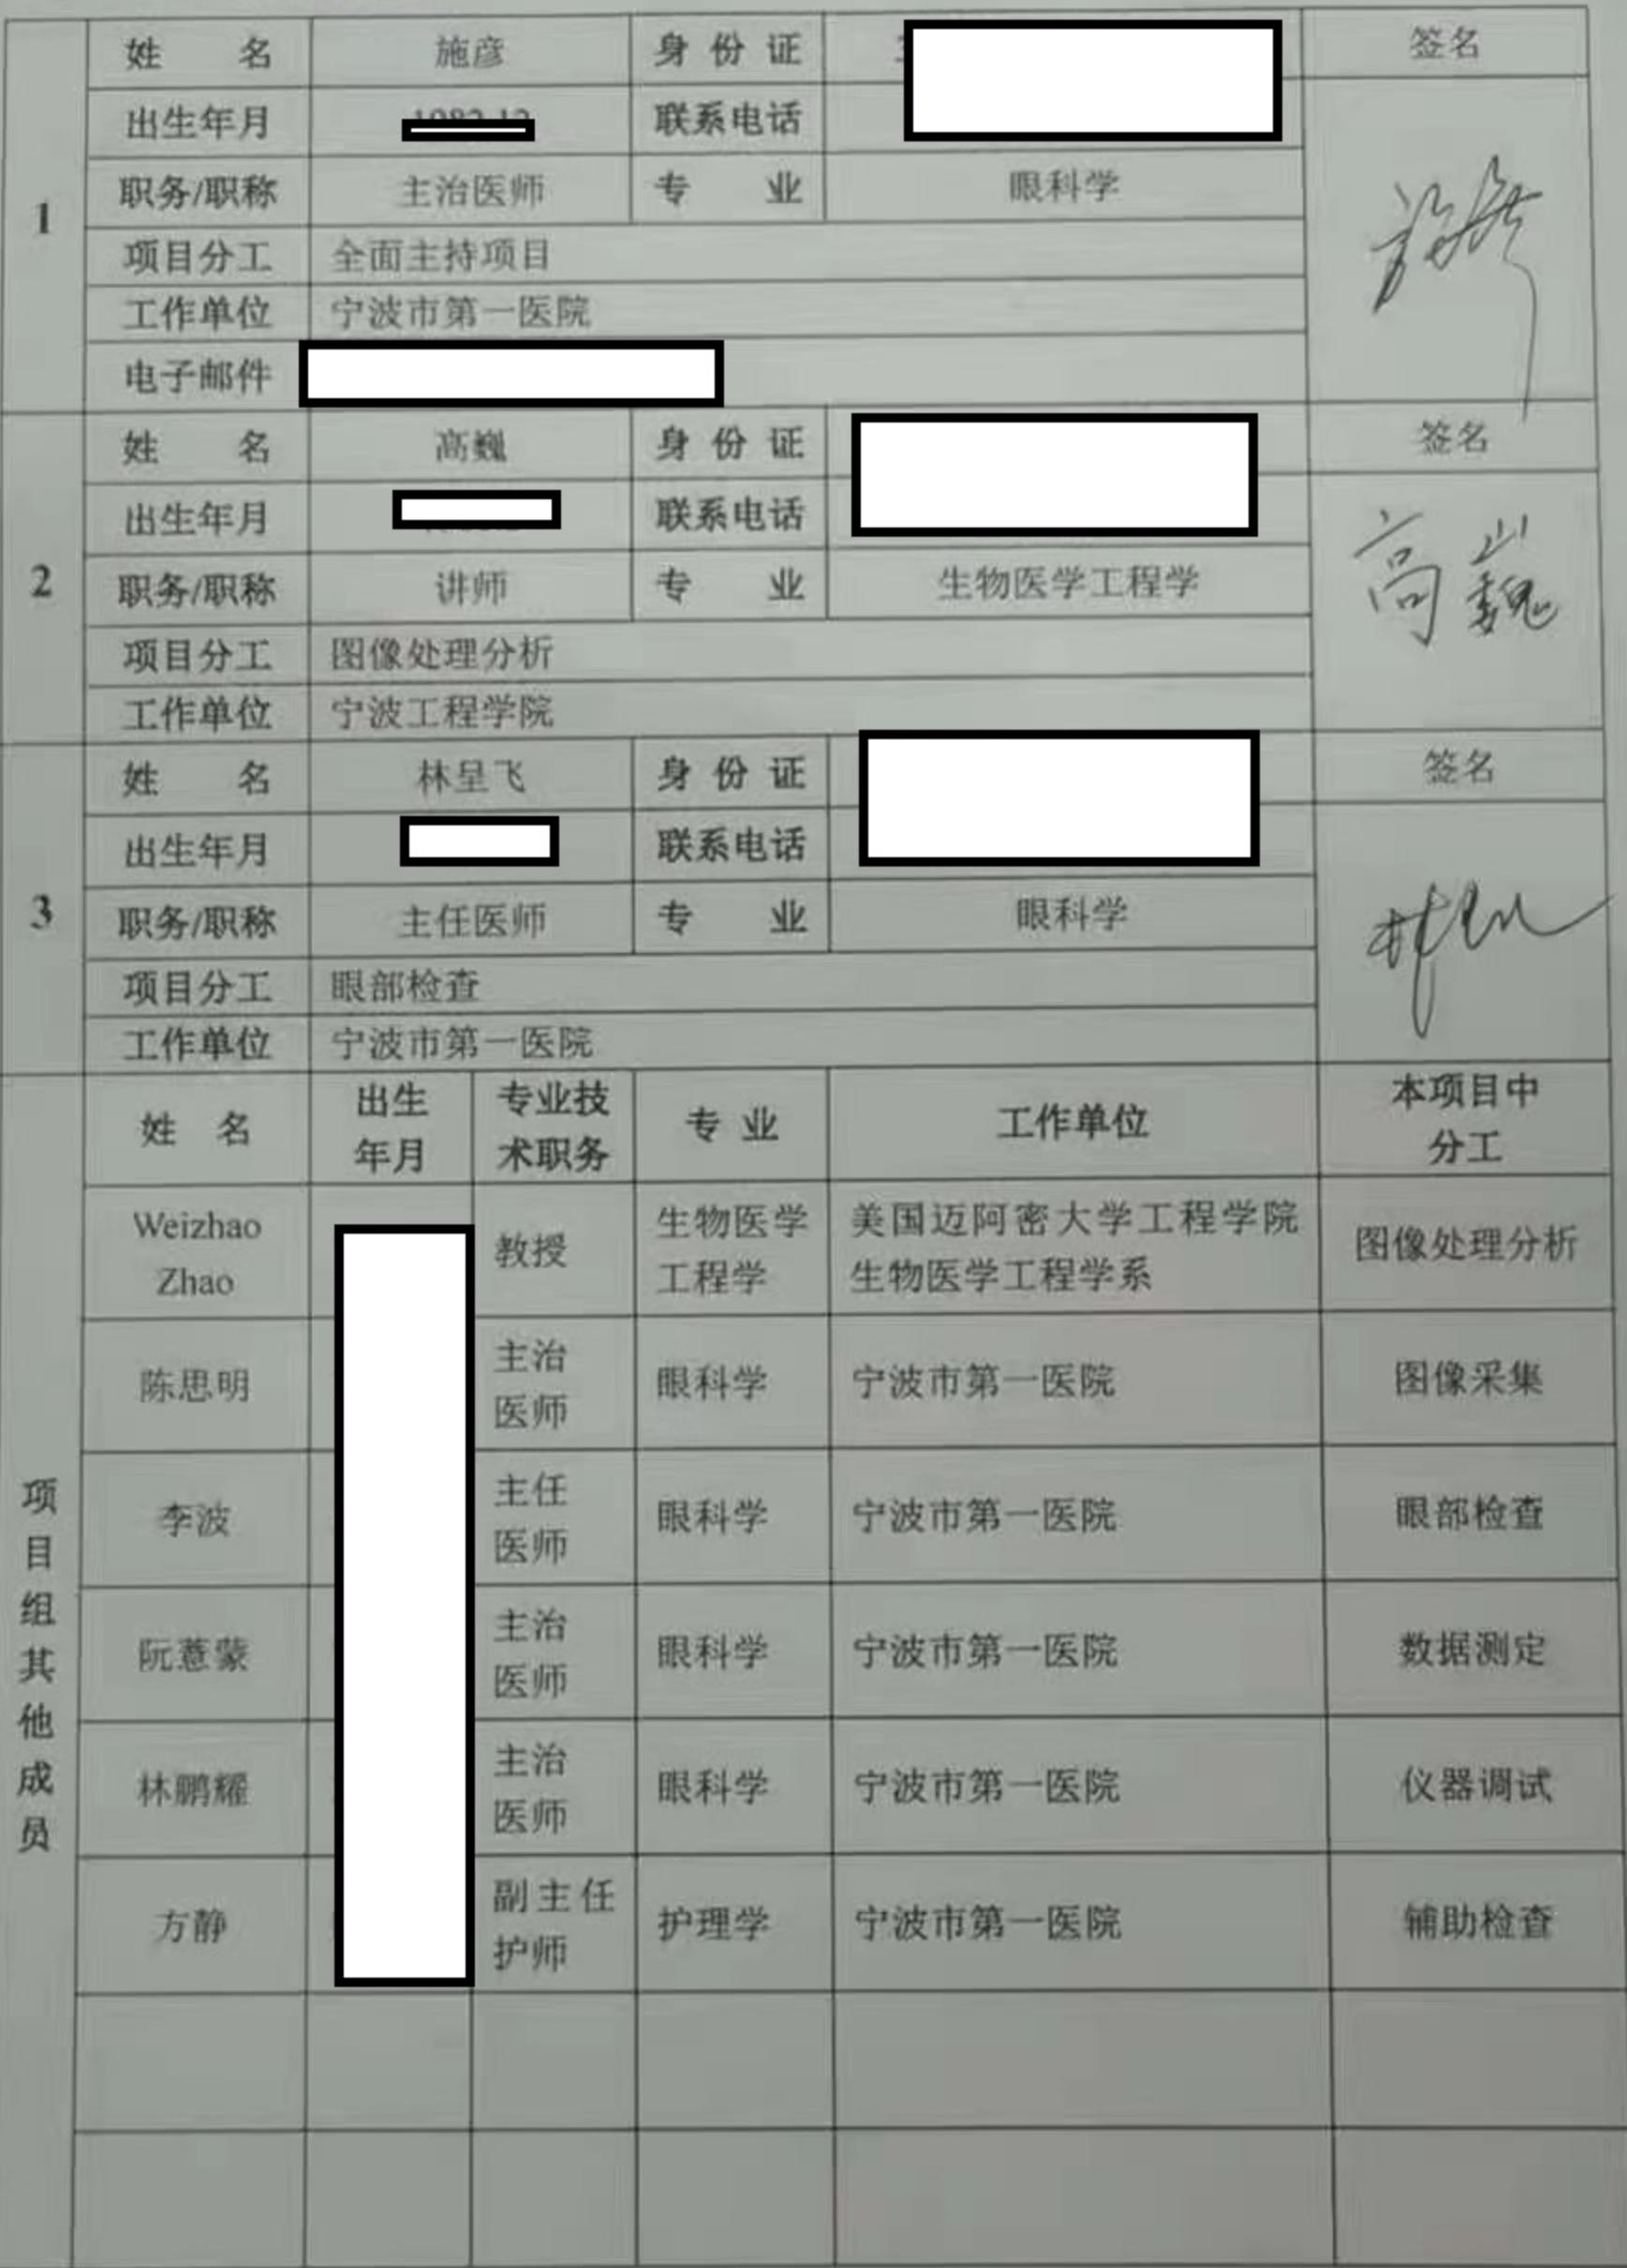 1
姓 名 施彦 身份证 签名
出生年月 联系电话
职务/职称 主治医师 专 业 眼科学
项目分工 全面主持项目
工作单位 宁波市第一医院
电子邮件
2
姓 名 高巍 身份证 签名
出生年月 联系电话 高巍
职务/职称 讲师 专 业 生物医学工程学
项目分工 图像处理分析
工作单位 宁波工程学院
3
姓 名 林呈飞 身份证 签名
出生年月 联系电话
职务/职称 主任医师 专 业 眼科学
项目分工 眼部检查
工作单位 宁波市第一医院
项目组其他成员
姓 名 出生年月 专业技术职务 专 业 工作单位 本项目中分工
Weizhao Zhao 教授 生物医学工程学 美国迈阿密大学工程学院生物医学工程学系 图像处理分析
陈思明 主治医师 眼科学 宁波市第一医院 图像采集
李波 主任医师 眼科学 宁波市第一医院 眼部检查
阮薏蒙 主治医师 眼科学 宁波市第一医院 数据测定
林鹏耀 主治医师 眼科学 宁波市第一医院 仪器调试
方静 副主任护师 护理学 宁波市第一医院 辅助检查